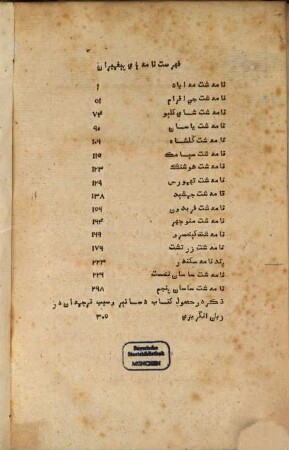 فهرست نامه‌های پیغمبران
نامه شت مه اباد ۱
نامه شت جی افرام ۵۱
نامه شت شای کلیو ۷۴
نامه شت یاسان ۹۰
نامه شت گلشاه ۱۰۹
نامه شت سیامک ۱۱۵
نامه شت هوشنگ ۱۲۳
نامه شت تهمورس ۱۲۹
نامه شت جمشید ۱۳۸
نامه شت فریدون ۱۵۹
نامه شت منوچهر
نامه شت کیخسرو
نامه شت زرتشت ۱۷۹
پند نامه سکندر ۲۲۳
نامه شت ساسان نخست ۲۲۹
نامه شت ساسان پنجم ۲۹۸
ذکر در حصول کتاب دساتیر و سبب ترجمه ان در
زبان انگریزی ۳۰۵
Bayerische
Staatsbibliothek
MÜNCHEN